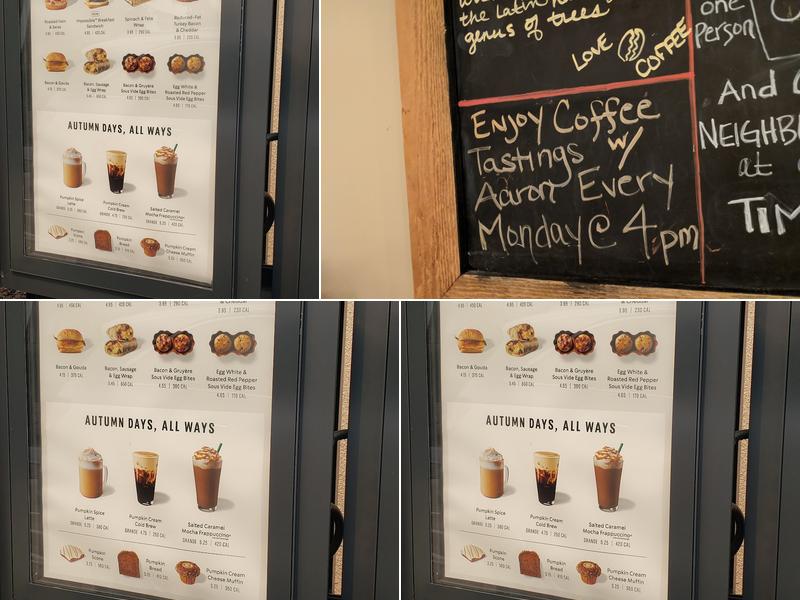 Impossible™ Breakfast
Sandwich
Spinach & Feta
Wrap
Reduced-Fat
Turkey Bacon
& Cheddar
Bacon & Gouda
Bacon, Sausage
& Egg Wrap
Bacon & Gruyère
Sous Vide Egg Bites
Egg White &
Roasted Red Pepper
Sous Vide Egg Bites
AUTUMN DAYS, ALL WAYS
Pumpkin Spice
Latte
Pumpkin Cream
Cold Brew
Salted Caramel
Mocha Frappuccino®
Pumpkin
Scone
Pumpkin
Bread
Pumpkin Cream
Cheese Muffin
genus of trees
LOVE
COFFEE
Enjoy Coffee
Tastings w/
Aaron Every
Monday @ 4 pm
one
person
And
at
& Cheddar
3.95 | 230 CAL
Bacon & Gouda
4.15 | 370 CAL
Bacon, Sausage
& Egg Wrap
5.45 | 650 CAL
Bacon & Gruyère
Sous Vide Egg Bites
Egg White &
Roasted Red Pepper
Sous Vide Egg Bites
4.65 | 170 CAL
AUTUMN DAYS, ALL WAYS
Pumpkin Spice
Latte
GRANDE 5.25 | 380 CAL
Pumpkin Cream
Cold Brew
GRANDE 4.75 | 250 CAL
Salted Caramel
Mocha Frappuccino®
GRANDE 5.25 | 420 CAL
Pumpkin
Scone
Pumpkin
Bread
3.15 | 410 CAL
Pumpkin Cream
Cheese Muffin
3.25 | 350 CAL
3.95 | 230 CAL
Bacon & Gouda
4.15 | 370 CAL
Bacon, Sausage
& Egg Wrap
5.45 | 650 CAL
Bacon & Gruyère
Sous Vide Egg Bites
Egg White &
Roasted Red Pepper
Sous Vide Egg Bites
4.65 | 170 CAL
AUTUMN DAYS, ALL WAYS
Pumpkin Spice
Latte
GRANDE 5.25 | 380 CAL
Pumpkin Cream
Cold Brew
GRANDE 4.75 | 250 CAL
Salted Caramel
Mocha Frappuccino®
GRANDE 5.25 | 420 CAL
Pumpkin
Scone
Pumpkin
Bread
3.15 | 410 CAL
Pumpkin Cream
Cheese Muffin
3.25 | 350 CAL